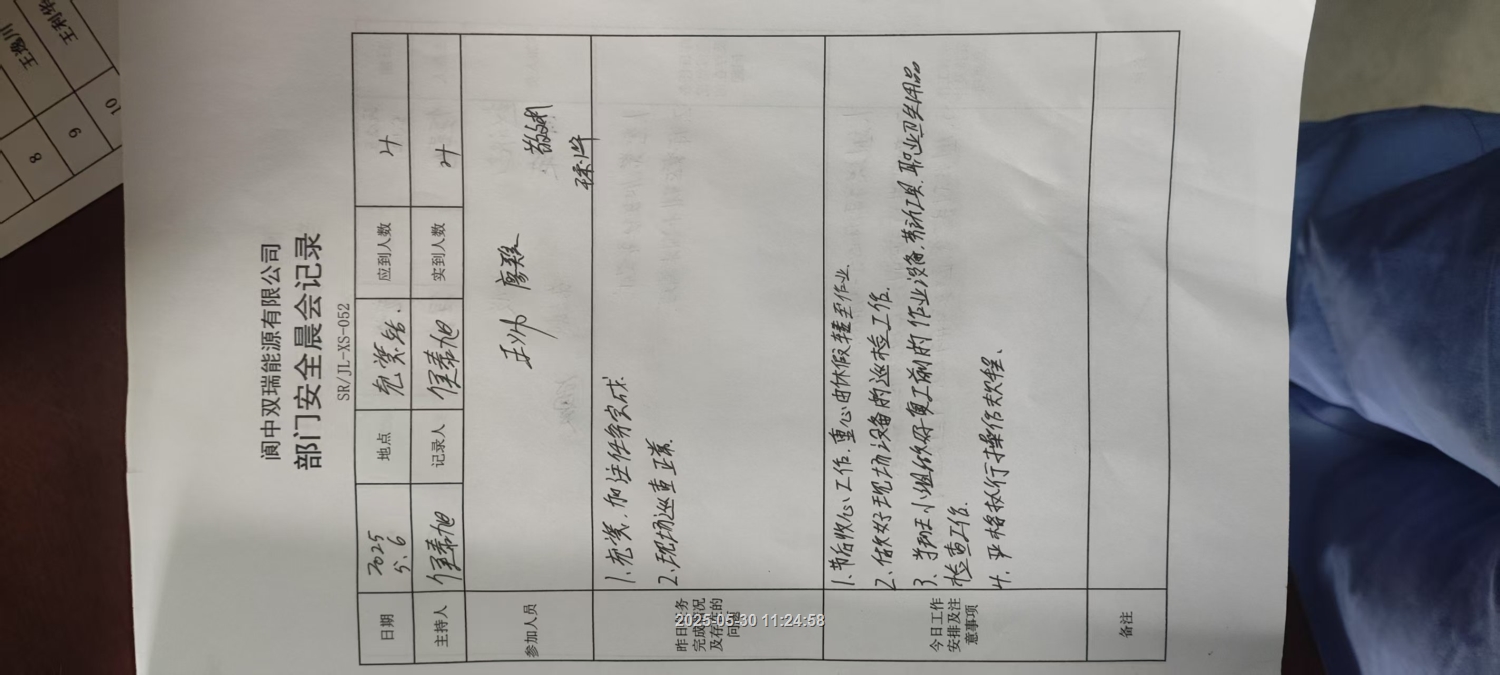 王利华
王逸川
10
9
8
阆中双瑞能源有限公司
部门安全晨会记录
SR/JL-XS-052
日期 2025 5.6 地点 充装站. 应到人数 4
主持人 记录人 实到人数 4
参加人员 王 廖
昨日任务
完成情况
及存在的
问题
1、充装、加注任务完成.
2、现场巡查正常.
今日工作
安排及注
意事项
1、节后收心工作,重心由休假转至作业.
2、做好现场设备的巡检工作.
3、 小组做好复工前的作业设备, 职业卫生用品
检查工作.
4、严格执行操作规程、
备注
2025-05-30 11:24:58